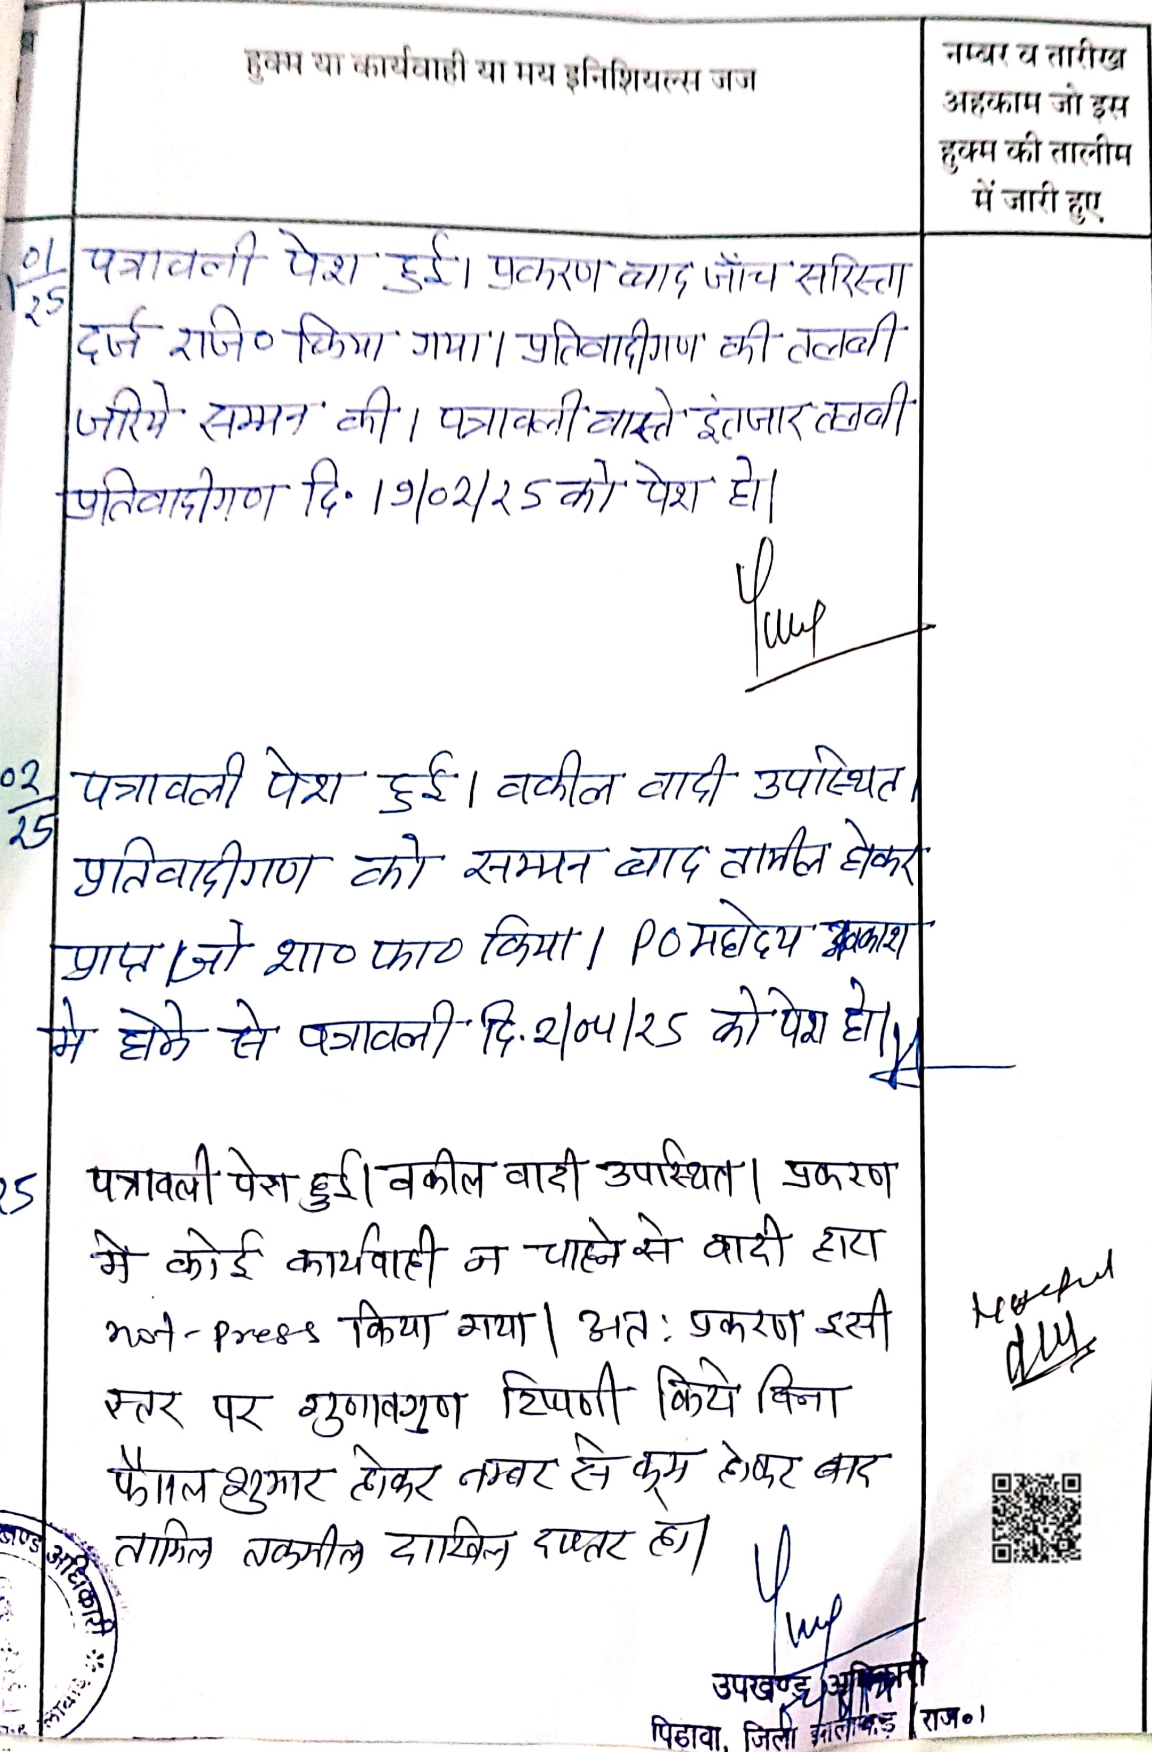 हुक्म या कार्यवाही या मय इनिशियल्स जज
नम्बर व तारीख
अहकाम जो इस
हुक्म की तालीम
में जारी हुए
01
25
पत्रावली पेश हुई। प्रकरण बाद जाँच सरिस्ता
दर्ज रजि० किया गया। प्रतिवादीगण की तलबी
जरिये सम्मन की। पत्रावली वास्ते इंतजार तलबी
प्रतिवादीगण दि. 19/02/25 को पेश हो।
02
25
पत्रावली पेश हुई। वकील वादी उपस्थित।
प्रतिवादीगण को सम्मन बाद तामील होकर
प्राप्त। जो शा० फा० किया। PO महोदय अवकाश
मे होने से पत्रावली दि. 2/04/25 को पेश हो।
25
पत्रावली पेश हुई। वकील वादी उपस्थित। प्रकरण
मे कोई कार्यवाही न चाहने से वादी द्वारा
not-press किया गया। अत: प्रकरण इसी
स्तर पर गुणावगुण टिप्पणी किये बिना
फैसल शुमार होकर नम्बर से कम होकर बाद
तामिल तकमील दाखिल दफ्तर हो।
उपखण्ड अधिकारी
पिडावा, जिला झालावाड़ (राज०)